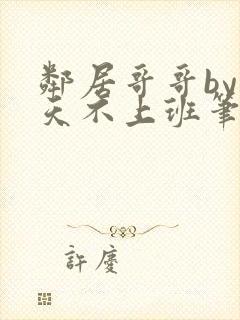 鄰居哥哥by
天不上班筆
許慶